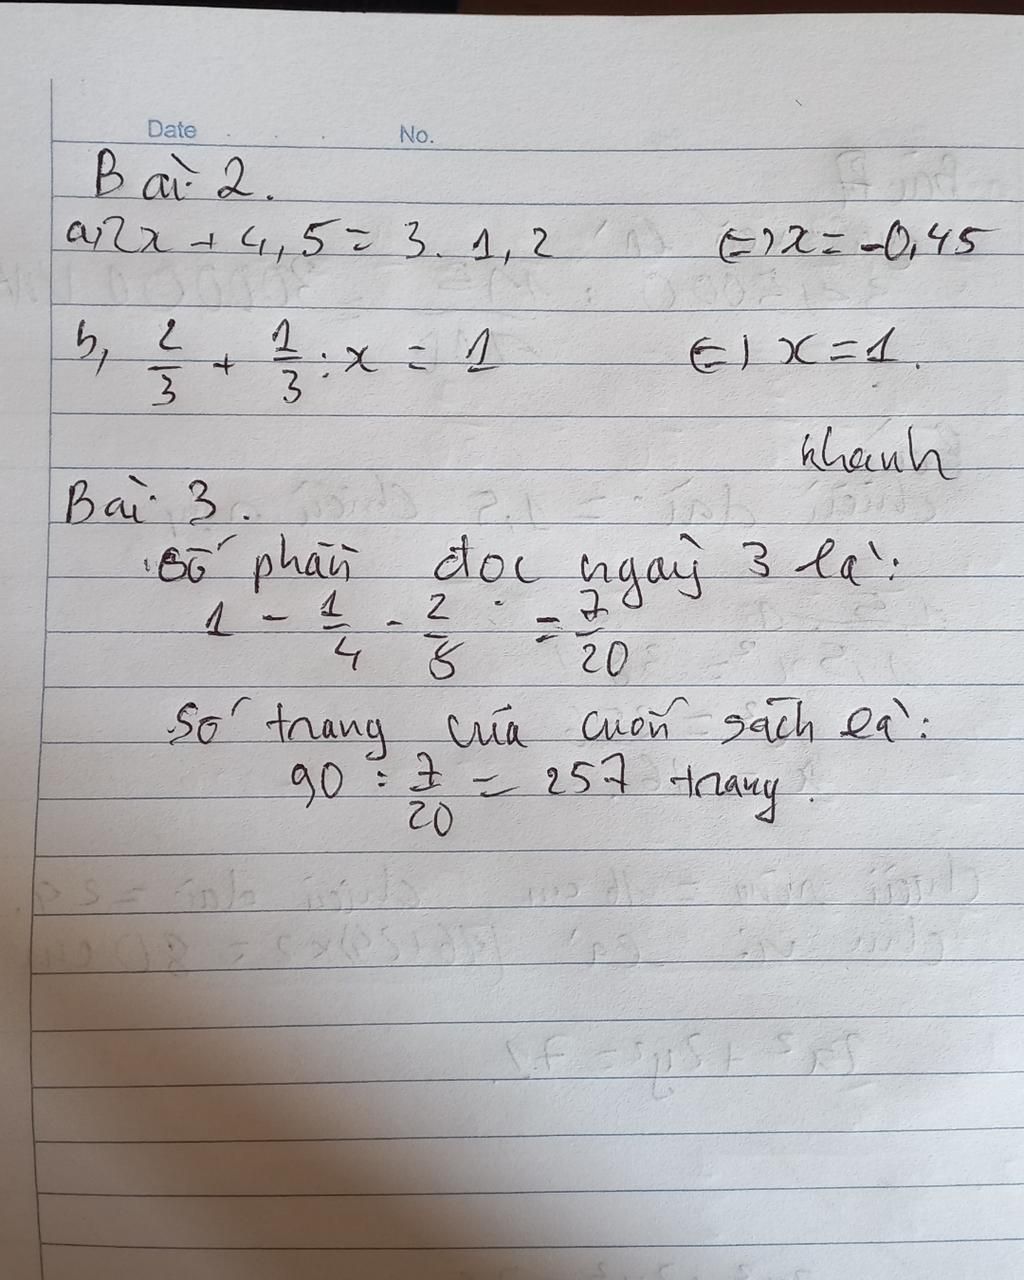 Date No.
Bài 2.
a, 2x + 4,5 = 3. 1,2 (=) x = -0,45
b, 2/3 + 1/3 : x = 1 (=) x = 1.
khanh
Bài 3.
Số phần đọc ngày 3 là:
1 - 1/4 - 2/5 = 7/20
Số trang của cuốn sách là:
90 : 7/20 = 257 trang.